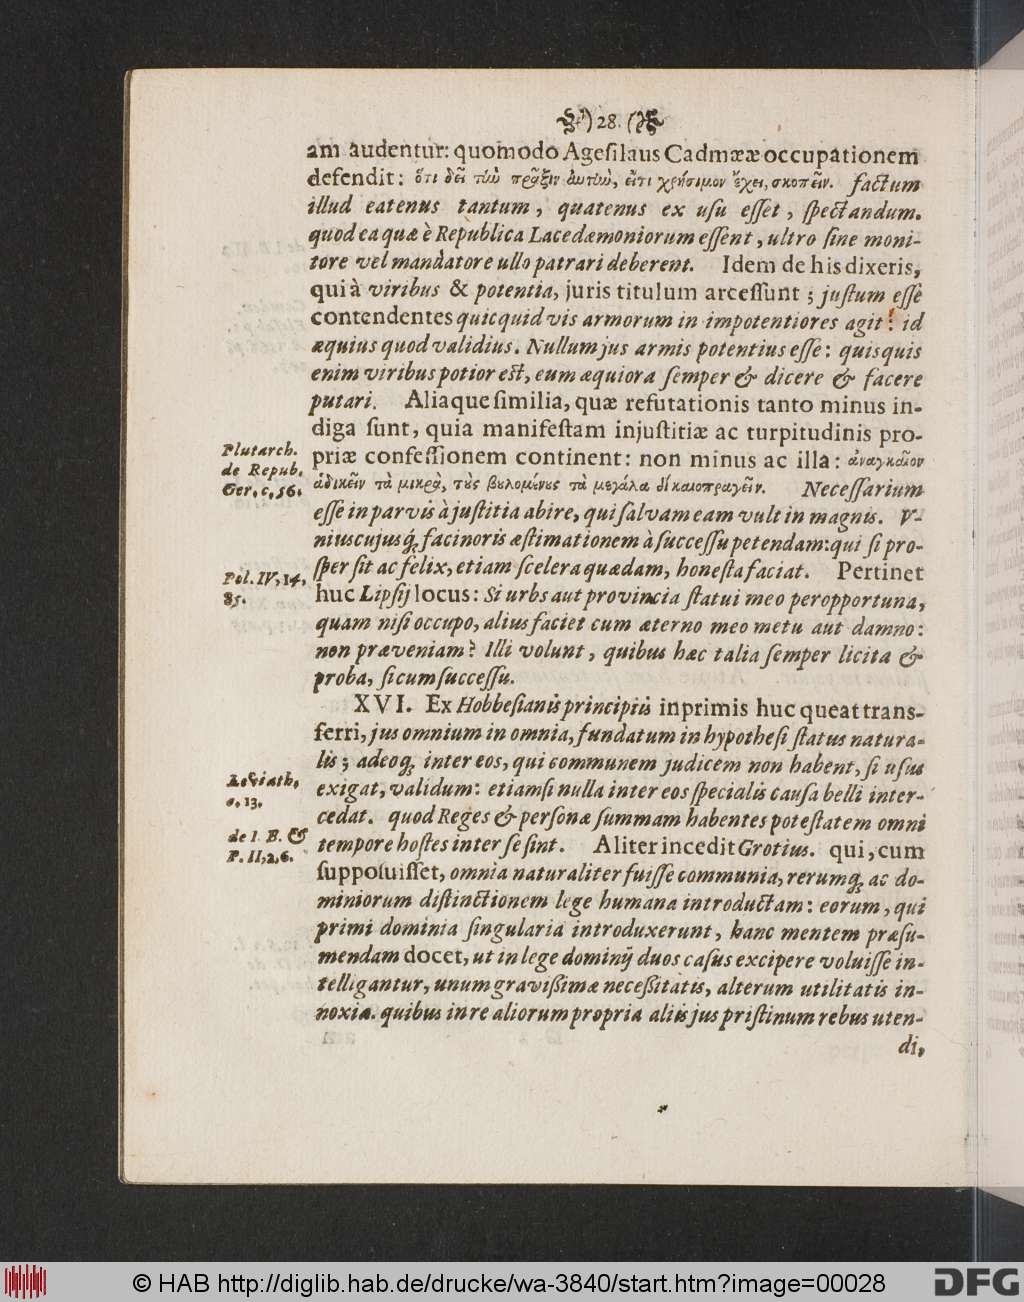 ) 28. (
am audentur: quomodo Ageſilaus Cadmææ occupationem
defendit: ὅτι δεῖ τὴν πρᾶξιν αὐτὴν, εἴτι χρήσιμον ἔχει, σκοπεῖν. factum
illud eatenus tantum, quatenus ex uſu eſſet, ſpectandum.
quod ea quæ è Republica Lacedæmoniorum eſſent, ultro ſine moni-
tore vel mandatore ullo patrari deberent. Idem de his dixeris,
qui à viribus & potentia, juris titulum arceſſunt; juſtum eſſe
contendentes quicquid vis armorum in impotentiores agit: id
æquius quod validius. Nullum jus armis potentius eſſe: quisquis
enim viribus potior eſt, eum æquiora ſemper & dicere & facere
putari. Aliaque ſimilia, quæ refutationis tanto minus in-
diga ſunt, quia manifeſtam injuſtitiæ ac turpitudinis pro-
Plutarch.
de Repub.
Ger. c. 56.
priæ confeſſionem continent: non minus ac illa: ἀναγκαῖον
ἀδικεῖν τὰ μικρὰ, τοὺς βουλομένους τὰ μεγάλα δίκαιοπραγεῖν. Neceſſarium
eſſe in parvis à juſtitia abire, qui ſalvam eam vult in magnis. V-
niuscujusq; facinoris æſtimationem à ſucceſſu petendam: qui ſi pro-
ſper ſit ac felix, etiam ſcelera quædam, honeſta faciat. Pertinet
Pol. IV, 14,
85.
huc Lipſij locus: Si urbs aut provincia ſtatui meo peropportuna,
quam niſi occupo, alius faciet cum æterno meo metu aut damno:
non præveniam? Illi volunt, quibus hæc talia ſemper licita &
proba, ſi cum ſucceſſu.
XVI. Ex Hobbeſianis principiis inprimis huc queat trans-
ferri, jus omnium in omnia, fundatum in hypotheſi ſtatus natura-
lis; adeoq; inter eos, qui communem judicem non habent, ſi uſus
Leviath.
c. 13.
exigat, validum: etiamſi nulla inter eos ſpecialis cauſa belli inter-
cedat. quod Reges & perſonæ ſummam habentes poteſtatem omni
de I. B. &
P. II, 2, 6.
tempore hoſtes inter ſe ſint. Aliter incedit Grotius. qui, cum
ſuppoſuiſſet, omnia naturaliter fuiſſe communia, rerumq; ac do-
miniorum diſtinctionem lege humana introductam: eorum, qui
primi dominia ſingularia introduxerunt, hanc mentem præſu-
mendam docet, ut in lege dominij duos caſus excipere voluiſſe in-
telligantur, unum graviſſimæ neceſſitatis, alterum utilitatis in-
noxia. quibus in re aliorum propria aliis jus priſtinum rebus uten-
di,
© HAB http://diglib.hab.de/drucke/wa-3840/start.htm?image=00028
DFG